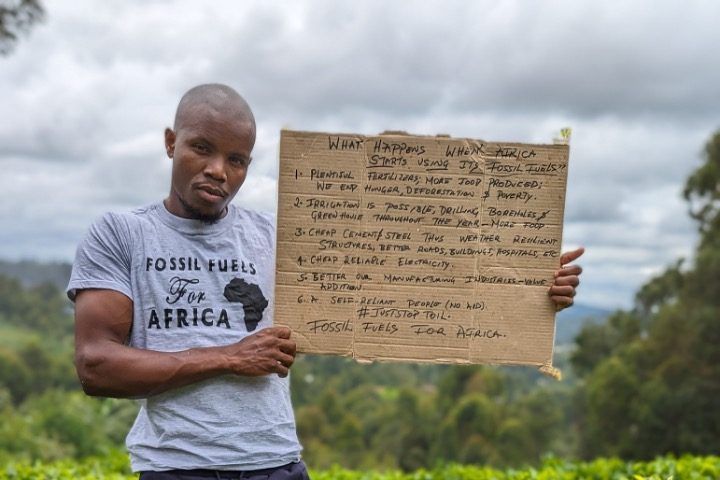 WHAT HAPPENS WHEN AFRICA
STARTS USING ITS FOSSIL FUELS"
1. PLENTIFUL FERTILIZERS; MORE FOOD PRODUCED;
WE END HUNGER, DEFORESTATION & POVERTY.
2. IRRIGATION IS POSSIBLE, DRILLING BOREHOLES &
GREENHOUSE THROUGHOUT THE YEAR - MORE FOOD
3. CHEAP CEMENT & STEEL THUS WEATHER RESILIENT
STRUCTURES, BETTER ROADS, BUILDINGS, HOSPITALS, ETC
4. CHEAP RELIABLE ELECTRICITY.
5. BETTER OUR MANUFACTURING INDUSTRIES - VALUE
ADDITION
6. A SELF-RELIANT PEOPLE (NO AID).
#JUSTSTOPTOIL.
FOSSIL FUELS FOR AFRICA.
FOSSIL FUELS
For
AFRICA